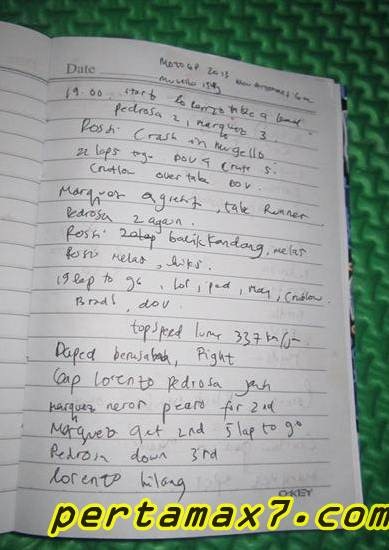 Date
MOTO GP 2013
Mugello Italy
19.00 start Lorenzo take a lead
Pedrosa 2, Marquez 3
Rossi Crash in Mugello
22 laps to go DOV 4 Crut 5
Crutlow over take DOV.
Marquez agresif, take Runner
Pedrosa 2 again
Rossi balik kandang, melas
Rossi melas, hiks.
19 lap to go, Lor, ped, mar, Crutlow
Bradl, DOV.
top speed 337 km/jam
Daped berusaha, Fight
Gap Lorenzo Pedrosa jauh
Marquez for 2nd
Marquez get 2nd 5 lap to go
Pedrosa down 3rd
Lorenzo hilang
O-KEY
pertamax7.com